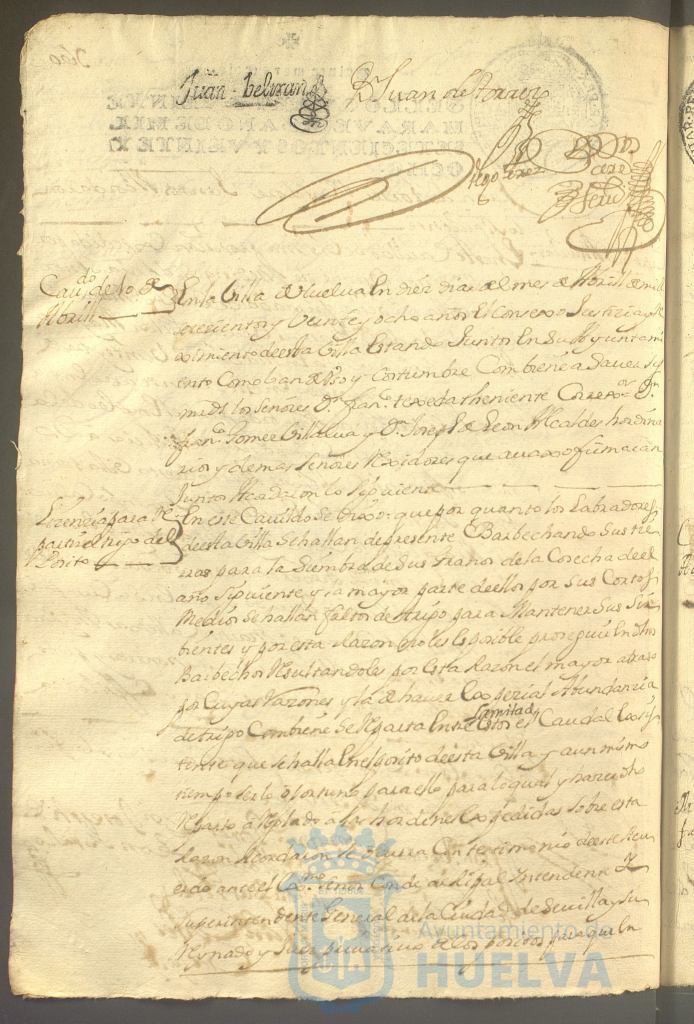 Juan Beltran
Juan de
Diego Perez
Cavdo de 10 de
Abrill
En la Villa de Huelva En diez dias del mes de Abrill de mill
setecientos y Veinte y ocho años El Consexo Justicia y Re
ximiento de esta Villa Estando Juntos En su Ayuntami
ento Como lo an de Uso y Costumbre Combiene a Saver
los Señores Dn Franco texeda theniente Correxor Dn
Juan Gomez Villalva y Dn Joseph de Leon Alcaldes hordina
rios y demas Señores Rexidores que avaxo firmaran
Juntos Acordaron lo siguiente
Licencia para Re
partir el trigo del
Posito
En este Cavildo se dixo que por quanto los Labradores
de esta Villa se hallan de presente Barbechando Sus tie
rras para la Siembra de Sus granos de la Cosecha de el
año siguiente y la mayor parte de ellos por Sus Cortos
Medios se hallan faltos de trigo para Mantener Sus Sir
bientes y por esta Razon no les es posible proseguir En dhos
Barbechos Resultandoles por Esta Razon el mayor atraso
por Cuyas Razones y la de haver Esperial Abundanzia
de trigo Combiene Se Reparta Entre Estos la mitad el Caudal Exis
tente que se halla En el posito de esta Villa y aun mismo
tiempo ser lo oportuno para ello para lo qual y hazer dho
Reparto arreglado a las hordenes Expedidas Sobre esta
Razon Acordaron Se ocurra Con testimonio de este Acu
erdo ante el Exmo Señor Conde de Ripal Yntendente
Superintendente General de la Ciudad de Sevilla y Su
Reynado y Juez privativo de los positos para que En
Ayuntamiento de
HUELVA